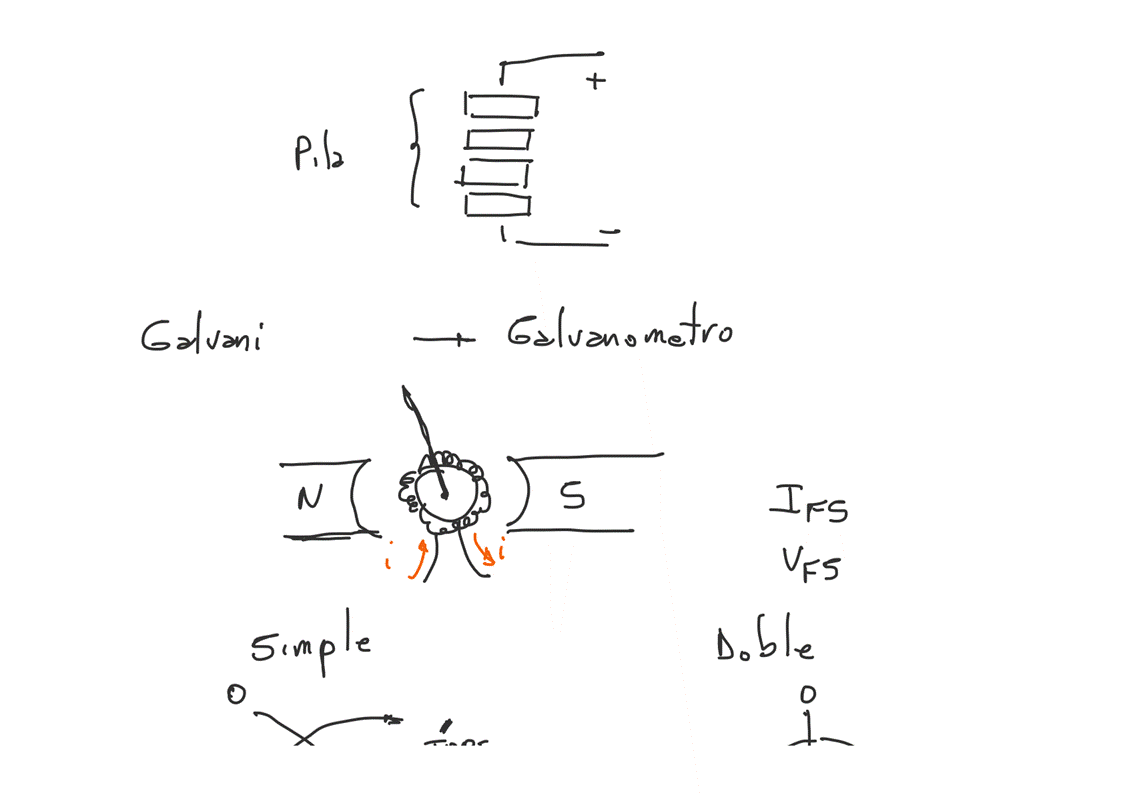 +
Pila
-
Galvani → Galvanometro
N S
I_FS
i i
V_FS
Simple Doble
0 0